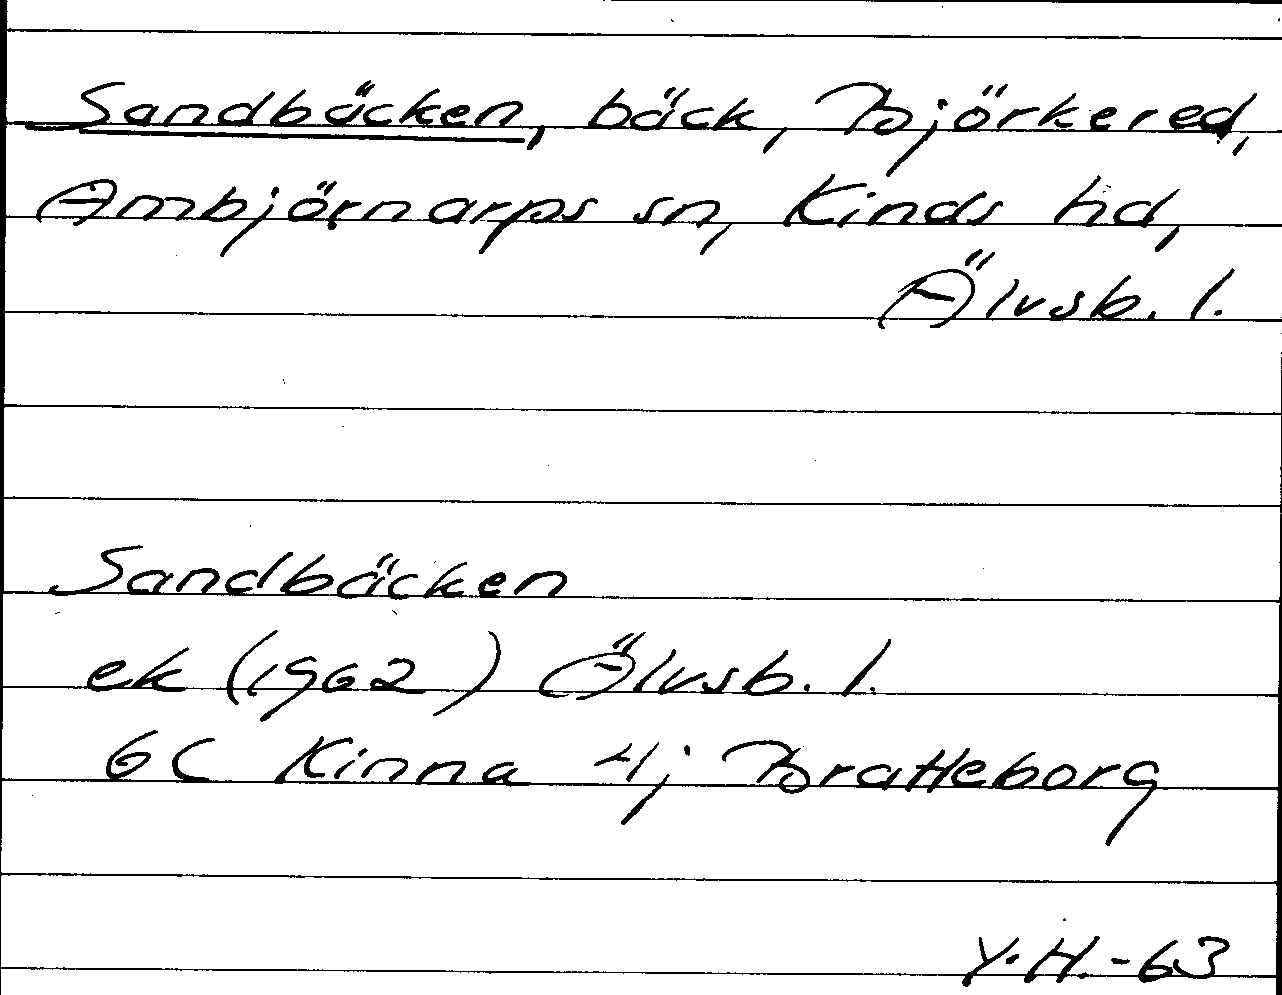 Sandbäcken, bäck, Björkered,
Ambjörnarps sn, Kinds hd,
Älvsb. l.
Sandbäcken
ek (1962) Älvsb. l.
6C Kinna 4j Bratteborg
Y.H.-63